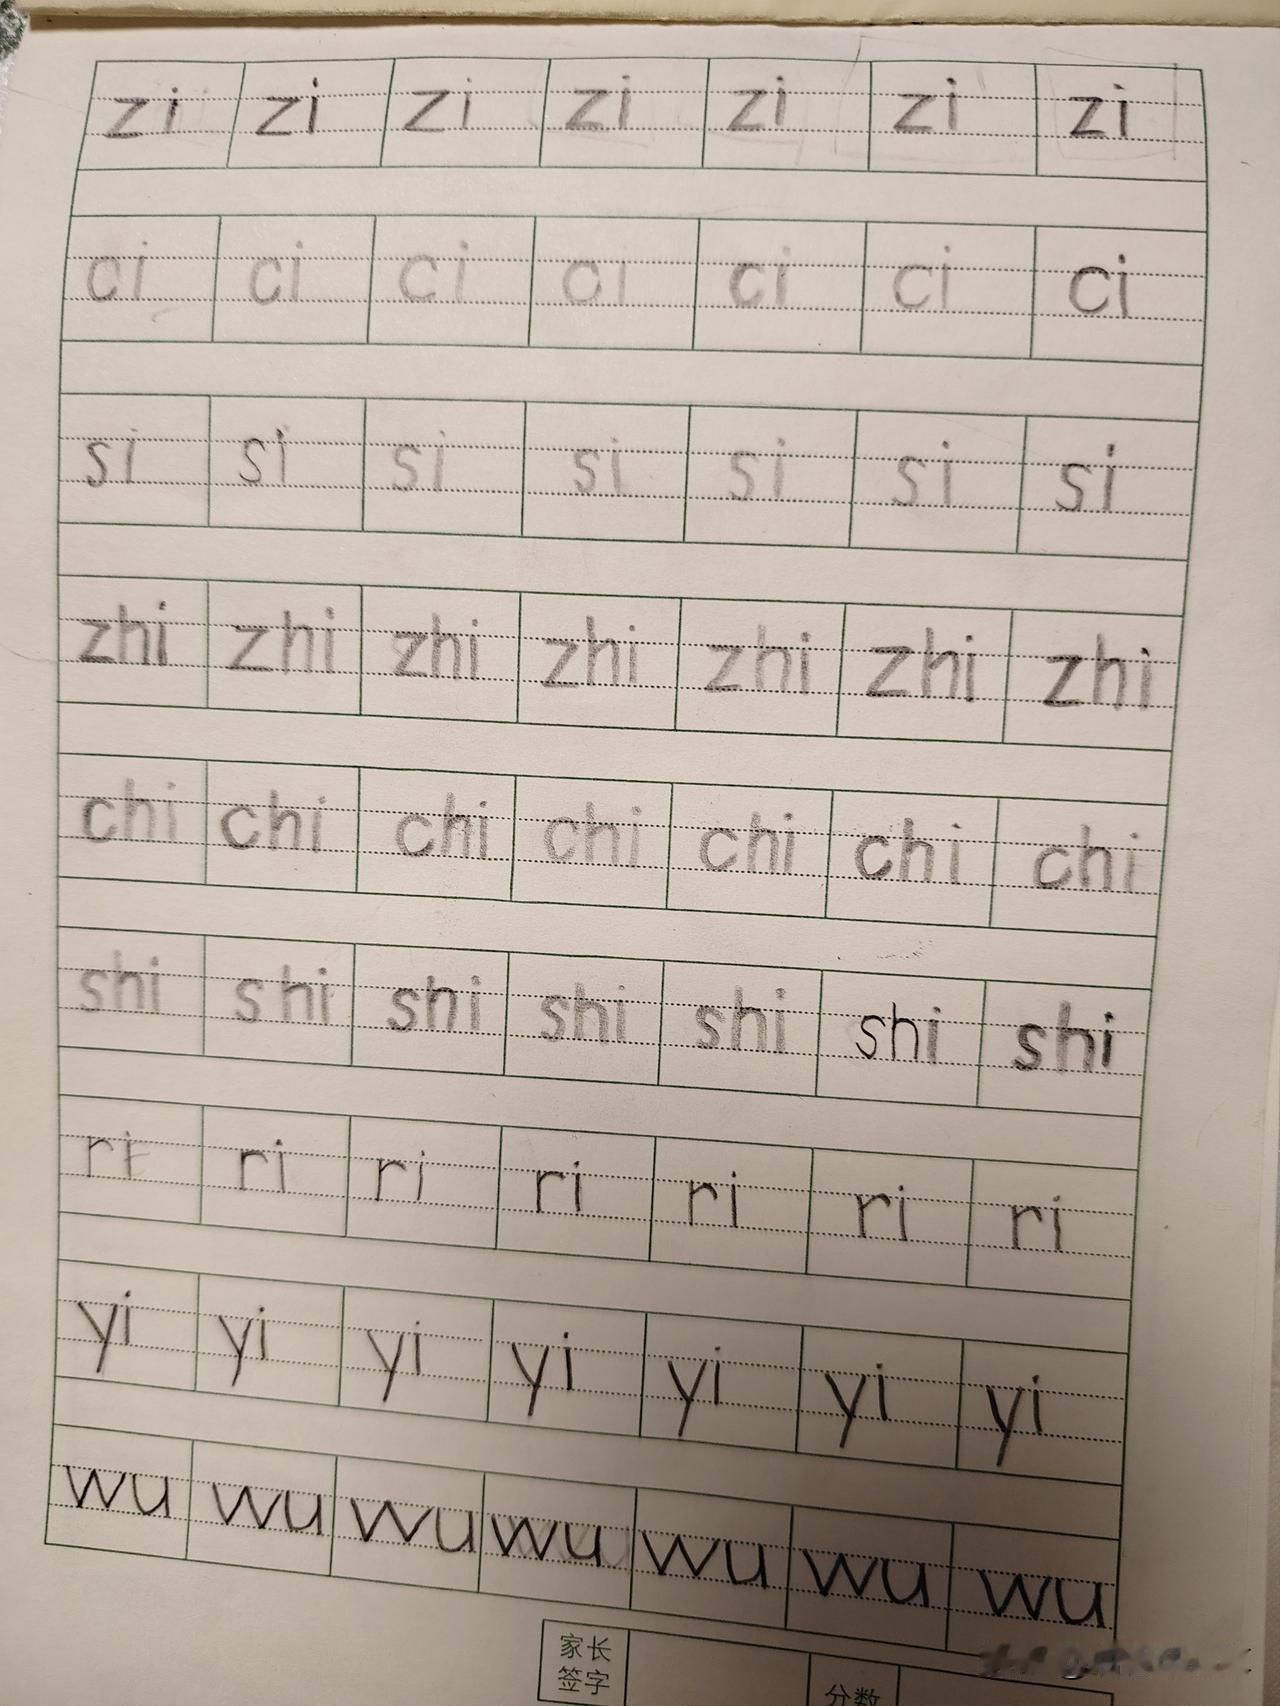 zi zi zi zi zi zi zi
ci ci ci ci ci ci ci
si si si si si si si
zhi zhi zhi zhi zhi zhi zhi
chi chi chi chi chi chi chi
shi shi shi shi shi shi shi
ri ri ri ri ri ri ri
yi yi yi yi yi yi yi
wu wu wu wu wu wu wu
家长
签字
分数